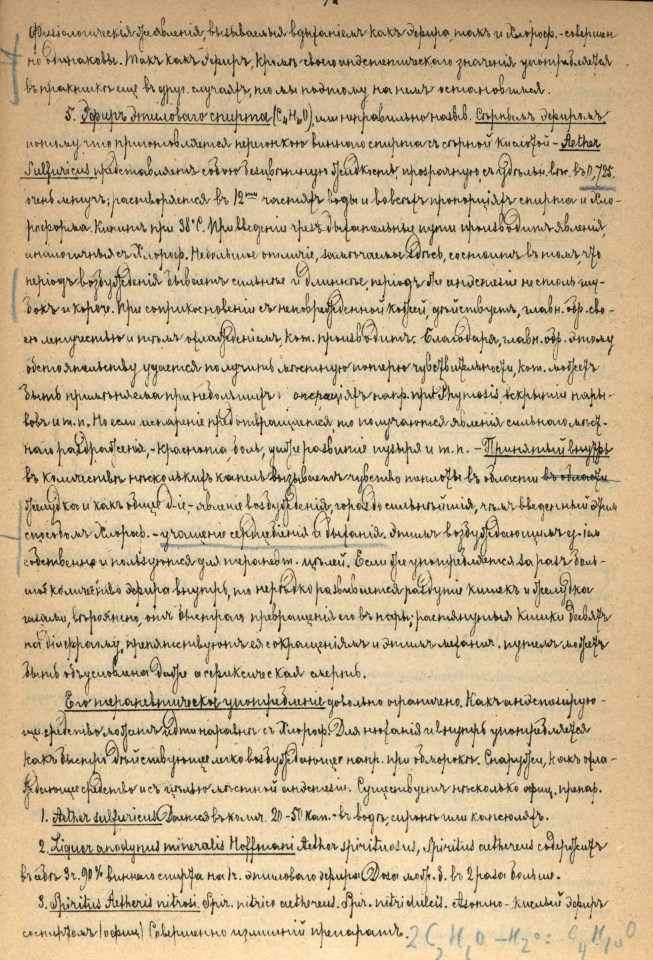 физіологическія явленія, вызываемыя вдыханіемъ какъ эфира, такъ и Хлороф. - совершен-
но одинаковы. Такъ какъ Эфиръ, кромѣ своего анестетическаго значенія употребляется
въ практикѣ еще въ друг. случаяхъ, то мы поэтому на немъ остановимся.
5. Эфиръ этиловаго спирта (C₄H₁₀O), или неправильно назыв. Сѣрнымъ эфиромъ,
потому что приготовляется перегонкою виннаго спирта съ сѣрной кислотой - Aether
Sulfuricus представляетъ собою безцвѣтную жидкость, прозрачную съ удѣльн. вѣс. въ 0,725.
очень летуч.; растворяется въ 12 частяхъ воды и во всѣхъ пропорціяхъ спирта и Хло-
роформа. Кипитъ при 38°C. При введеніи чрезъ дыхательные пути производитъ явленія,
аналогичныя съ Хлороф. Небольшое отличіе, замѣчаемое здѣсь, состоитъ въ томъ, что
періодъ возбужденія бываетъ сильнѣе и длиннѣе, періодъ же анестезіи не столь глу-
бокъ и короче. При соприкосновеніи съ неповрежденной кожей, дѣйствуетъ, главн. обр. сво-
ею летучестью и тѣмъ охлажденіемъ, кот. производитъ. Благодаря, главн. обр. этому
обстоятельству удается получить мѣстную потерю чувствительности, кот. можетъ
быть примѣняема при небольшихъ операціяхъ напр. при Phymosis, вскрытіи нары-
вовъ и т. п. Но если испареніе предотвращается, то получаются явленія сильнаго мѣст-
наго раздраженія, - краснота, боль, даже развитіе пузыря и т. п. - Принятый внутрь
въ количествѣ нѣсколькихъ капель вызываетъ чувство теплоты въ области въ области
желудка и какъ общее д-іе, - явленіе возбужденія, гораздо сильнѣйшія, чѣмъ введенный этимъ
способомъ Хлороф. - учащеніе сердцебіенія и дыханія. Этимъ возбуждающимъ д-іемъ
собственно и пользуются для терапевт. цѣлей. Если же употребляется за разъ боль-
шое количество эфира внутрь, то нерѣдко развивается раздутіе кишекъ и желудка
газами, вѣроятно, отъ быстраго превращенія его въ пары; растянутыя кишки давятъ
на діафрагму, препятствуютъ ея сокращеніямъ и этимъ механич. путемъ можетъ
быть обусловлена даже асфиксическая смерть.
Его терапевтическое употребленіе довольно ограничено. Какъ анестезирую-
щее средство можетъ идти наравнѣ съ Хлороф. Для нюханія и внутрь употребляется
какъ быстро дѣйствующее легко возбуждающее напр. при обморокѣ. Снаружи, какъ охла-
ждающее средство и съ цѣлью мѣстной анестезіи. Существуетъ нѣсколько офиц. препар.
1. Aether sulfuricus Дается въ колич. 20-50 кап. - въ водѣ, сиропѣ или капсюляхъ.
2. Liquor anodynus mineralis Hoffmani Aether spirituosus, Spiritus aethereus содержитъ
въ себѣ 3 ч. 90% виннаго спирта на 1 ч. этиловаго эфира Доза мож. б. въ 2 раза больше.
3. Spiritus Aetheris nitrosi. Spir. nitrico aethereus. Spir. nitri dulcis. Азотно-кислый эфиръ
со спиртомъ (офиц.) Совершенно излишній препаратъ.
2C₂H₆O - H₂O = C₄H₁₀O